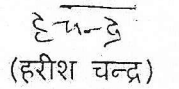 (हरीश चन्द्र)